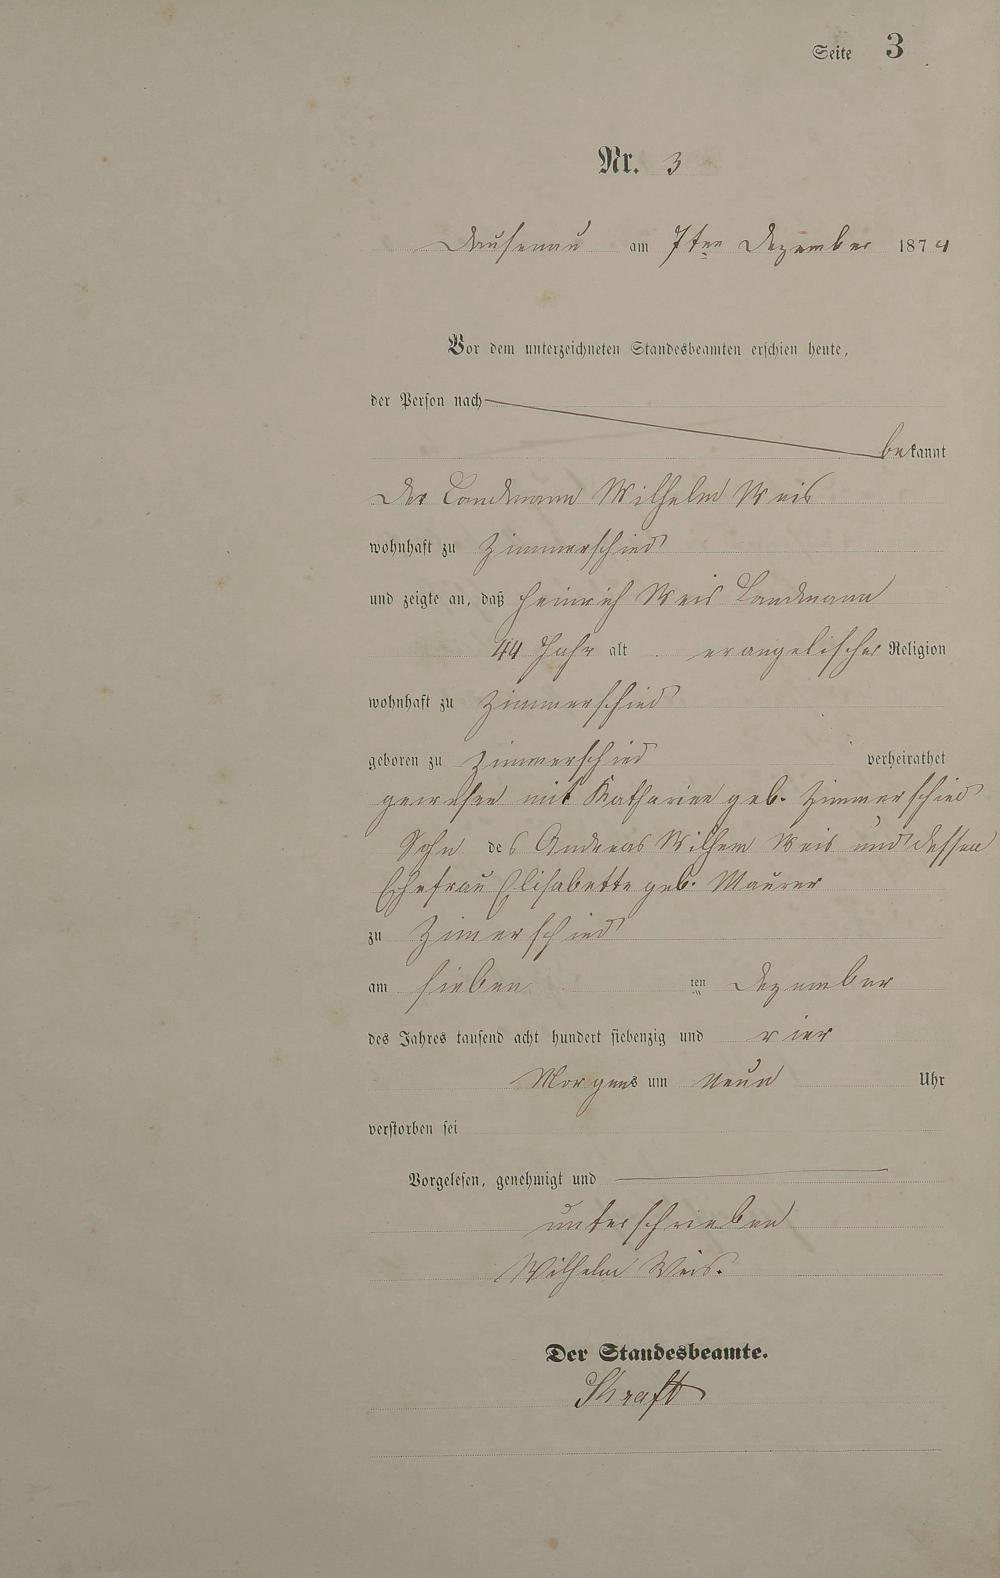 Seite 3
Nr. 3
Dausenau am 7ten Dezember 1874
Vor dem unterzeichneten Standesbeamten erschien heute,
der Person nach
bekannt
Der Landmann Wilhelm Weis
wohnhaft zu Zimmerschied
und zeigte an, daß Heinrich Weis Landmann
44 Jahr alt evangelischer Religion
wohnhaft zu Zimmerschied
geboren zu Zimmerschied verheirathet
gewesen mit Katharine geb. Zimmerschied
Sohn des Andreas Wilhem Weis und dessen
Ehefrau Elisabette geb. Maurer
zu Zimerschied
am sieben ten Dezember
des Jahres tausend acht hundert siebenzig und vier
Morgens um neun Uhr
verstorben sei
Vorgelesen, genehmigt und
unterschrieben
Wilhelm Weis.
Der Standesbeamte.
Kraft